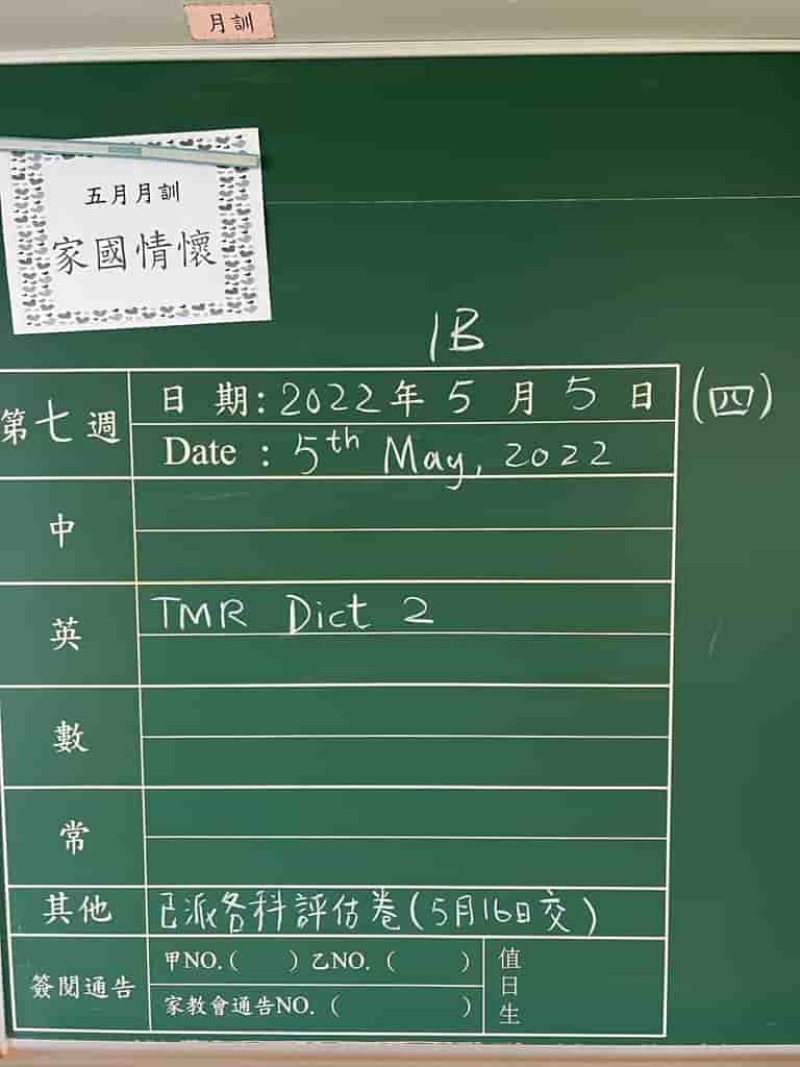 月訓
五月月訓
家國情懷
1B
第七週
日期:2022年5月5日(四)
Date : 5th May, 2022
中
英
TMR Dict 2
數
常
其他
已派各科評估卷(5月16日交)
簽閱通告
甲NO.( ) 乙NO. ( )
家教會通告NO. ( )
值日生